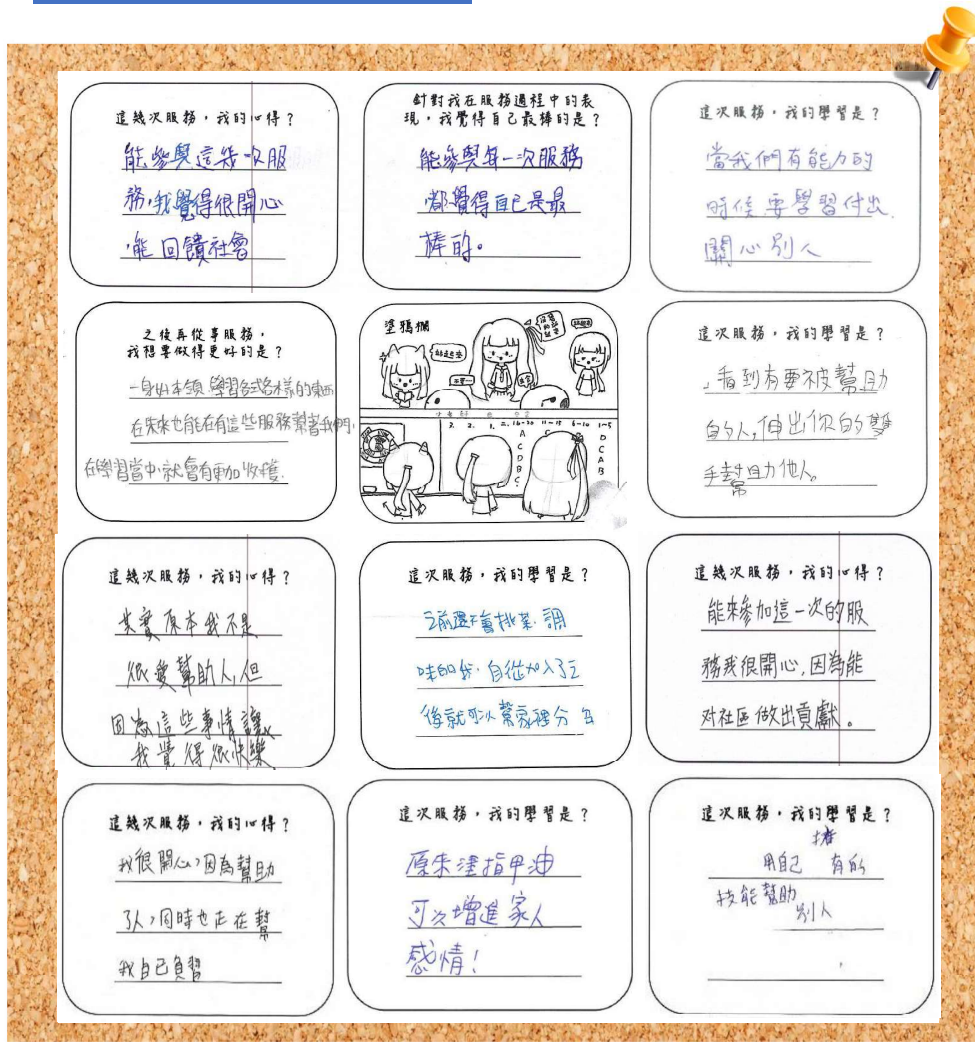 這幾次服務，我的心得？
能參與這幾次服
務，我覺得很開心
，能回饋社會
針對我在服務過程中的表
現，我覺得自己最棒的是？
能參與每一次服務
都覺得自己是最
棒的。
這次服務，我的學習是？
當我們有能力的
時候要學習付出
關心別人
之後再從事服務，
我想要做得更好的是？
一身好本領 學習各式各樣的東西
在未來也能在有這些服務幫著我們，
在學習當中，就會有更加收穫.
塗鴉欄
小老師
2. 2. 1. 2. 16-20 11-15 6-10 1-5
A
C
D
B
C
D
C
A
B
這次服務，我的學習是？
看到有要被幫助
的人，伸出你的雙
手幫助他人。
這幾次服務，我的心得？
其實原本我不是
很愛幫助人，但
因為這些事情讓
我覺得很快樂
這次服務，我的學習是？
之前還不會挑菜、調
味的我，自從加入了之
後就可以幫家裡分
這幾次服務，我的心得？
能來參加這一次的服
務我很開心，因為能
对社區做出貢獻。
這幾次服務，我的心得？
我很開心，因為幫助
了人，同時也正在幫
我自己負習
這次服務，我的學習是？
原來塗指甲油
可以增進家人
感情！
這次服務，我的學習是？
用自己擁有的
技能幫助別人